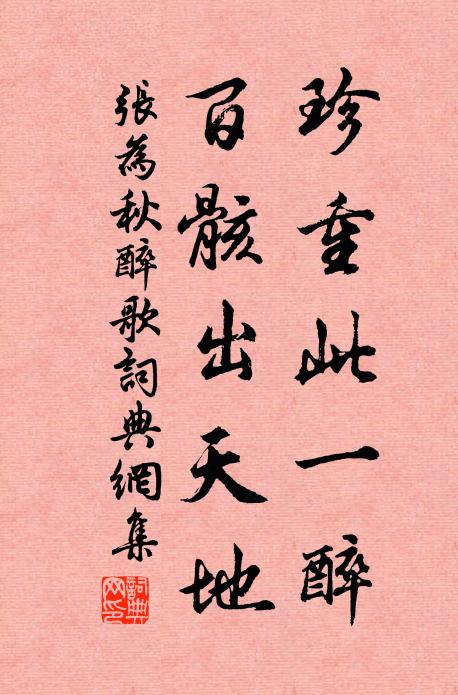 珍重此一醉
百骸出天地
張為秋醉歌詞典網集
詞典網印